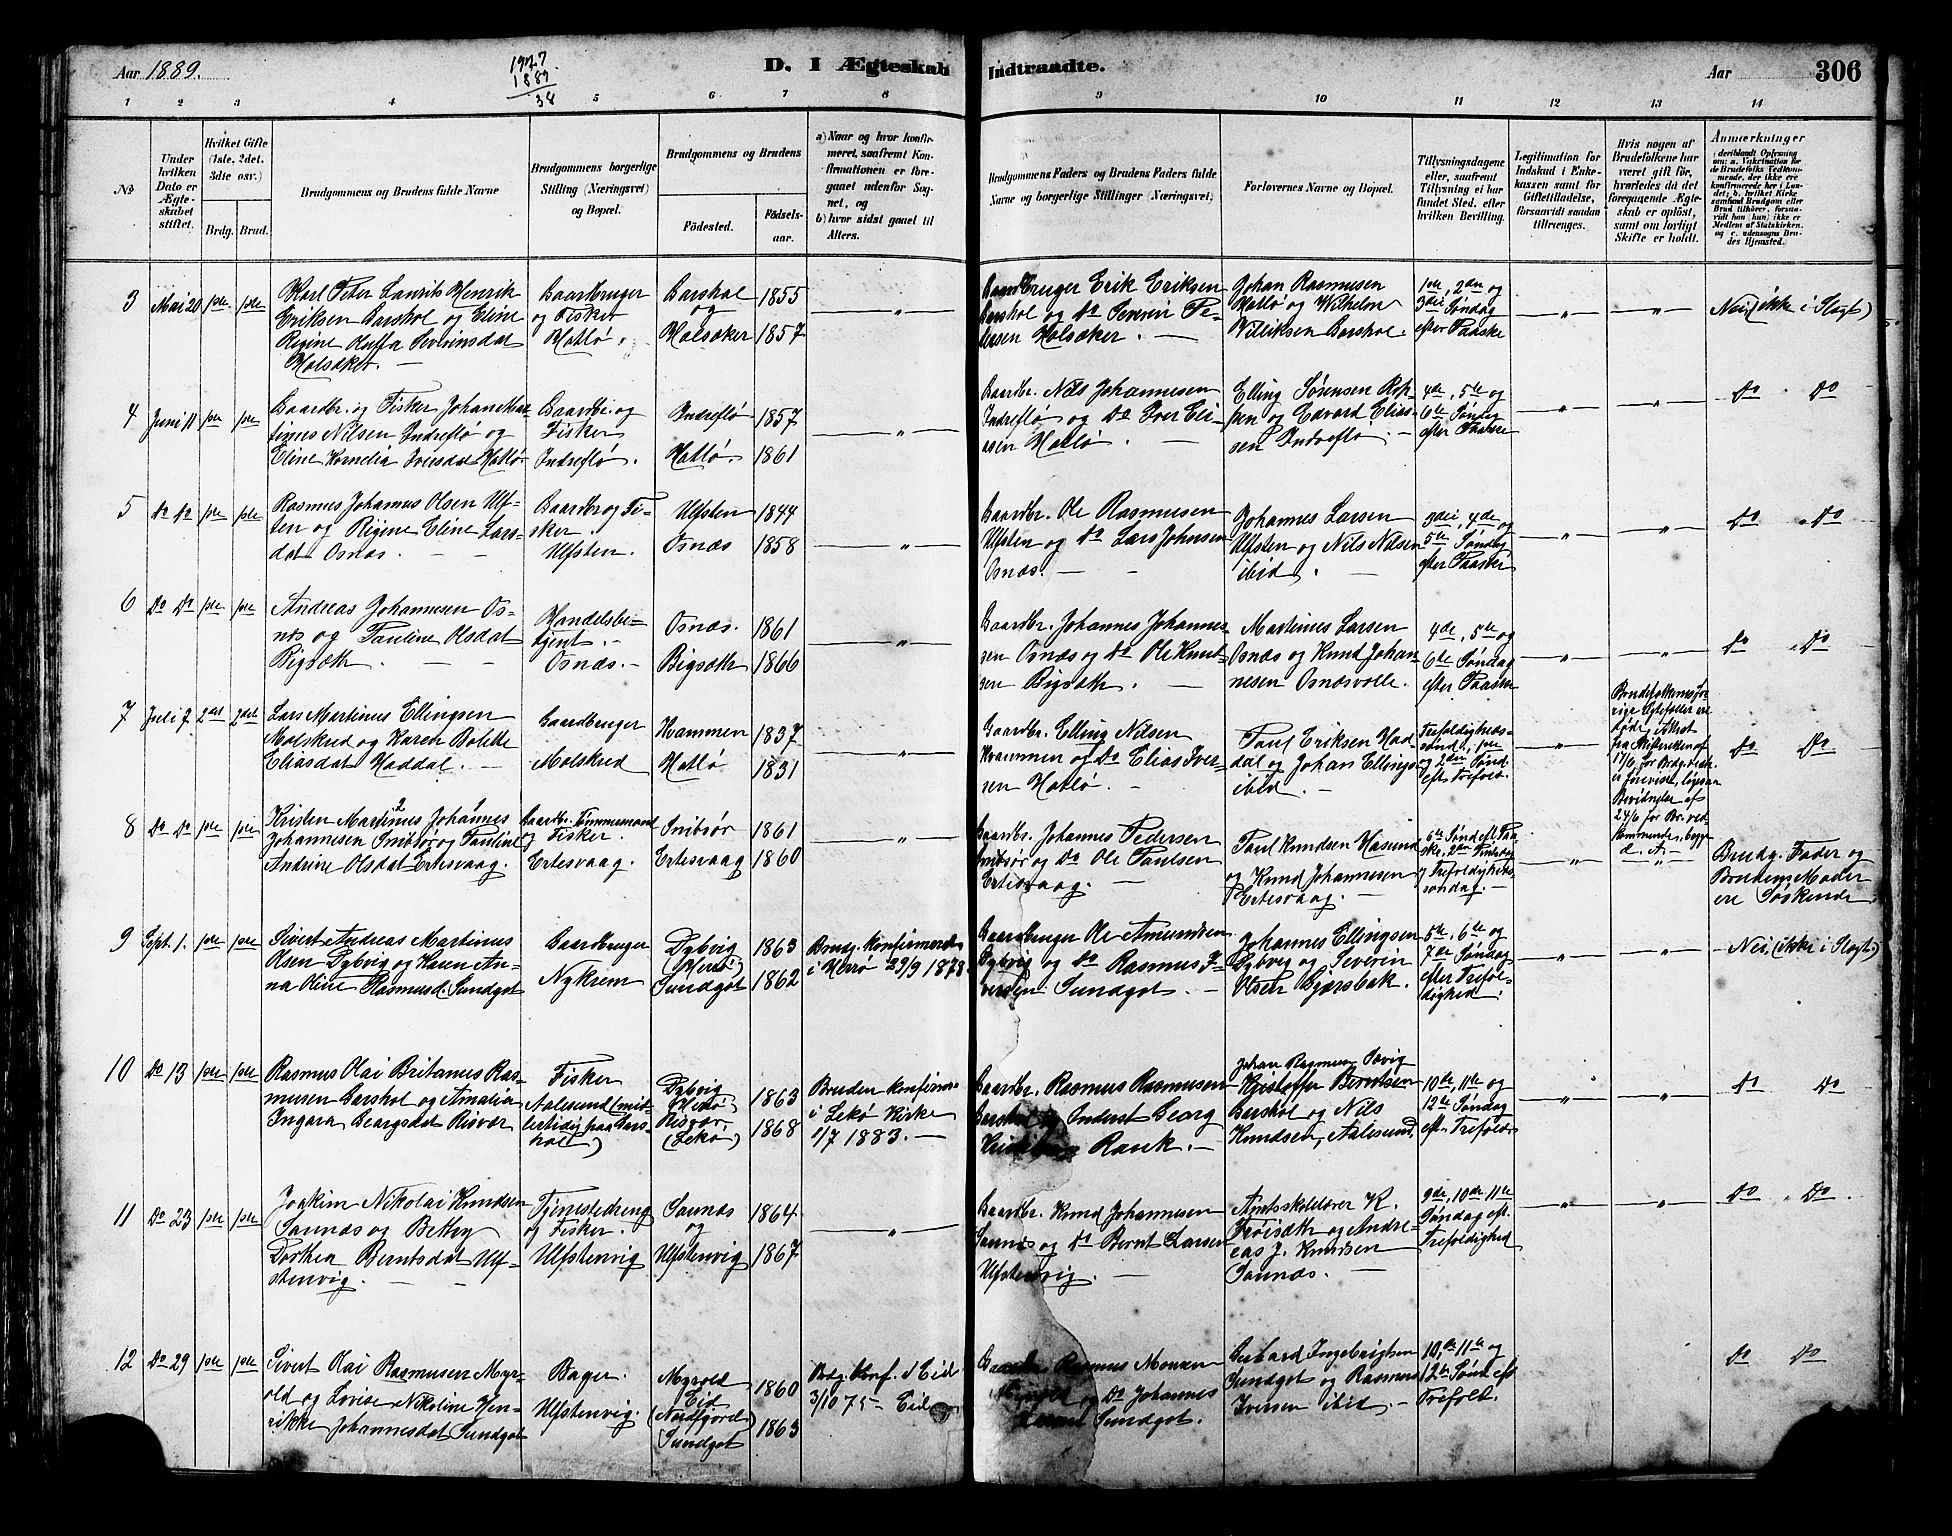 Aar 1889.
1927
1889
38
D. I Ægteskab Indtraadte.
Aar
306
1 2 3 4 5 6 7 8 9 10 11 12 13 14
No
Under hvilken Dato er Ægteskabet stiftet.
Hvilket Gifte (1ste, 2det, 3die osv.)
Brdg. Brud.
Brudgommens og Brudens fulde Navne
Brudgommens borgerlige Stilling (Næringsvei) og Bopæl.
Brudgommens og Brudens
Födested.
Födselsaar.
a) Naar og hvor konfirmeret, saafremt Konfirmationen er foregaaet udenfor Sognet, og
b) hvor sidst gaaet til Alters.
Brudgommens Faders og Brudens Faders fulde Navne og borgerlige Stillinger (Næringsvei)
Forlovernes Navne og Bopæl.
Tillysningsdagene eller, saafremt Tillysning ei har fundet Sted, efter hvilken Bevilling.
Legitimation for Indskud i Enkekassen samt for Giftetilladelse, forsaavidt saadan tiltrænges.
Hvis nogen af Brudefolkene har været gift för, hvorledes da det foregaaende Ægteskab er oplöst, samt om lovligt Skifte er holdt.
Anmærkninger
3 Mai 20 1ste 1ste
Karl Peter Laurits Henrik
Eriksen Garshol og Eline
Regine Severinsdat
Holsaker.
Gaardbruger
og Fisker
Hatlø.
Garshol
og
Holsaker
1855
1857
Gaardbruger Erik Eriksen
Garshol og Do Severin Pe-
tersen Holsaker.
Johan Rasmusen
Hatlø og Wilhelm
Williksen Garshol.
1ste, 2den og
3die Søndag
efter Paaske
Nei (ikke i Slægt)
4 Juni 11 1ste 1ste
Gaardbr. og Fisker Johan Mar-
tinus Nilsen Indreflø og
Eline Kornelia Iversdat Hatlø.
Gaardbr. og
Fisker
Indreflø.
Indreflø
Hatlø.
1857
1861
Gaardbr. Nils Johannesen
Indreflø og Do Iver Eli-
asen Hatlø.
Elling Sørensen
og Edvard Elias-
sen Indreflø.
4de, 5te og
6te Søndag
efter Paaske
Do Do
5 Do Do 1ste 1ste
Rasmus Johannes Olsen Ulf-
sten og Regine Eline Lars-
dat Osnæs.
Gaardbr og Fi-
sker
Ulfsten.
Ulfsten
Osnæs
1844
1858
Gaardbr. Ole Rasmusen
Ulfsten og Do Lars Johnsen
Osnæs.
Johannes Larsen
Ulfsten og Nils Nilsen
ibid.
3die, 4de og
5te Søndag
efter Paaske
Do Do
6 Do Do 1ste 1ste
Andreas Johannesen Os-
næs og Pauline Olsdat
Bigsæth.
Handelsbe-
tjent.
Osnæs.
Osnæs.
Bigsæth
1861
1866
Gaardbr. Johannes Johannes-
sen Osnæs og Do Ole Knud-
sen Bigsæth.
Martinus Larsen
Osnæs og Knud Johan-
nesen Osnæsvolle.
4de, 5te og
6te Søndag
efter Paaske
Do Do
7 Juli 7 2det 2det
Lars Martinus Ellingsen
Molskred og Karen Bolette
Eliasdat Haddal.
Gaardbruger
Molskred
Kvammen
Hatlø
1837
1831
Gaardbr. Elling Nilsen
Kvammen og Do Elias Iver-
sen Hatlø.
Paul Eriksen Had-
dal og Johan Ellings.
ibid.
Trefoldigheds-
sønd., 1ste
og 2den Sønd.
eft. Trefold.
Brudefolkenes for-
rige Egtefæller ere
døde. Attest
fra Skifteretten af
17/6 for Brdg.
er forevist, ligesaa
af
24/6 for Br. ved-
kommende
Do Do
8 Do Do 1ste 1ste
Kristen Martinus Johannes
Johannesen Snibsør og Pauline
Andrine Olsdat Ertesvaag.
Gaardbr. Tømmermand
og Fisker.
Ertesvaag.
Snibsør
Ertesvaag
1861
1860
Gaardbr. Johannes Pedersen
Snibsør og Do Ole Paulsen
Ertesvaag.
Paul Knudsen Hasund
og Knud Johannesen
Ertesvaag.
6te Sønd. eft. Paa-
ske, 2den Pintsedag
og Trefoldigheds-
søndag.
Brudg. Fader og
Brudens Moder
ere Søskende.
9 Sept. 1. 1ste 1ste
Sivert Andreas Martinus
Olsen Dybvig og Karen An-
na Oline Rasmusd. Sundgot
Gaardbruger
Nykrem
Dybvig
(Herø)
Sundgot
1863
1862
Brudg. konfirmeret
i Herø 29/9 1878.
Gaardbruger Ole Amundsen
Dybvig og Do Rasmus I-
versen Sundgot.
Johannes Ellingsen
Dybvig og Severin
Olsen Bjærsbak.
5te, 6te og
7de Søndag
efter Trefol-
dighed.
Nei (ikke i Slægt)
10 Do 13 1ste 1ste
Rasmus Olai Britanus Ras-
musen Garshol og Amalia
Ingara Georgsdat Risvær
Fisker
Aalesund (mid-
lertidig paa Gars-
hol)
Dybvig
(Herø)
Risvær,
(Lekø)
1863
1868
Bruden konfirm.
i Lekø Kirke
1/7 1883.
Gaardbr. Rasmus Rasmusen
Garshol og Inderst Georg
Rask.
Johan Rasmusen Søvig
Kristoffer Berntsen
Garshol og Nils
Knudsen, Aalesund.
10de, 11te og
12te Søndag
eft. Trefold.
Do Do
11 Do 23 1ste 1ste
Joakim Nikolai Knudsen
Saunæs og Bethy
Dorthea Berntsdat Ulf-
stenvig.
Tjenestedreng
og Fisker.
Ulfstenvig
Saunæs
og
Ulfstenvig
1864
1867
Gaardbr. Knud Johannesen
Saunæs og Do Bernt Larsen
Ulfstenvig.
Amtsskolelærer K.
Frøisæth og Andre-
eas J. Knudsen
Saunæs.
9de, 10de 11te
Søndag eft.
Trefoldighed
Do Do
12 Do 29 1ste 1ste
Sivert Olai Rasmusen Myr-
old og Lovise Nikoline Hen-
rikke Johannesdat Sundgot
Bager.
Ulfstenvig.
Myrold
Eid
(Nordfjord)
Sundgot
1860
1863
Brdg. konf. i Eid
3/10 75 Eid
Rasmus Monsen
Myrold og Do Johannes
Sundgot.
Gerhard Ingebrigtsen
Sundgot og Rasmus
Iversen ibid.
10de, 11te og
12te Sønd. eft
Trefold.
Do Do